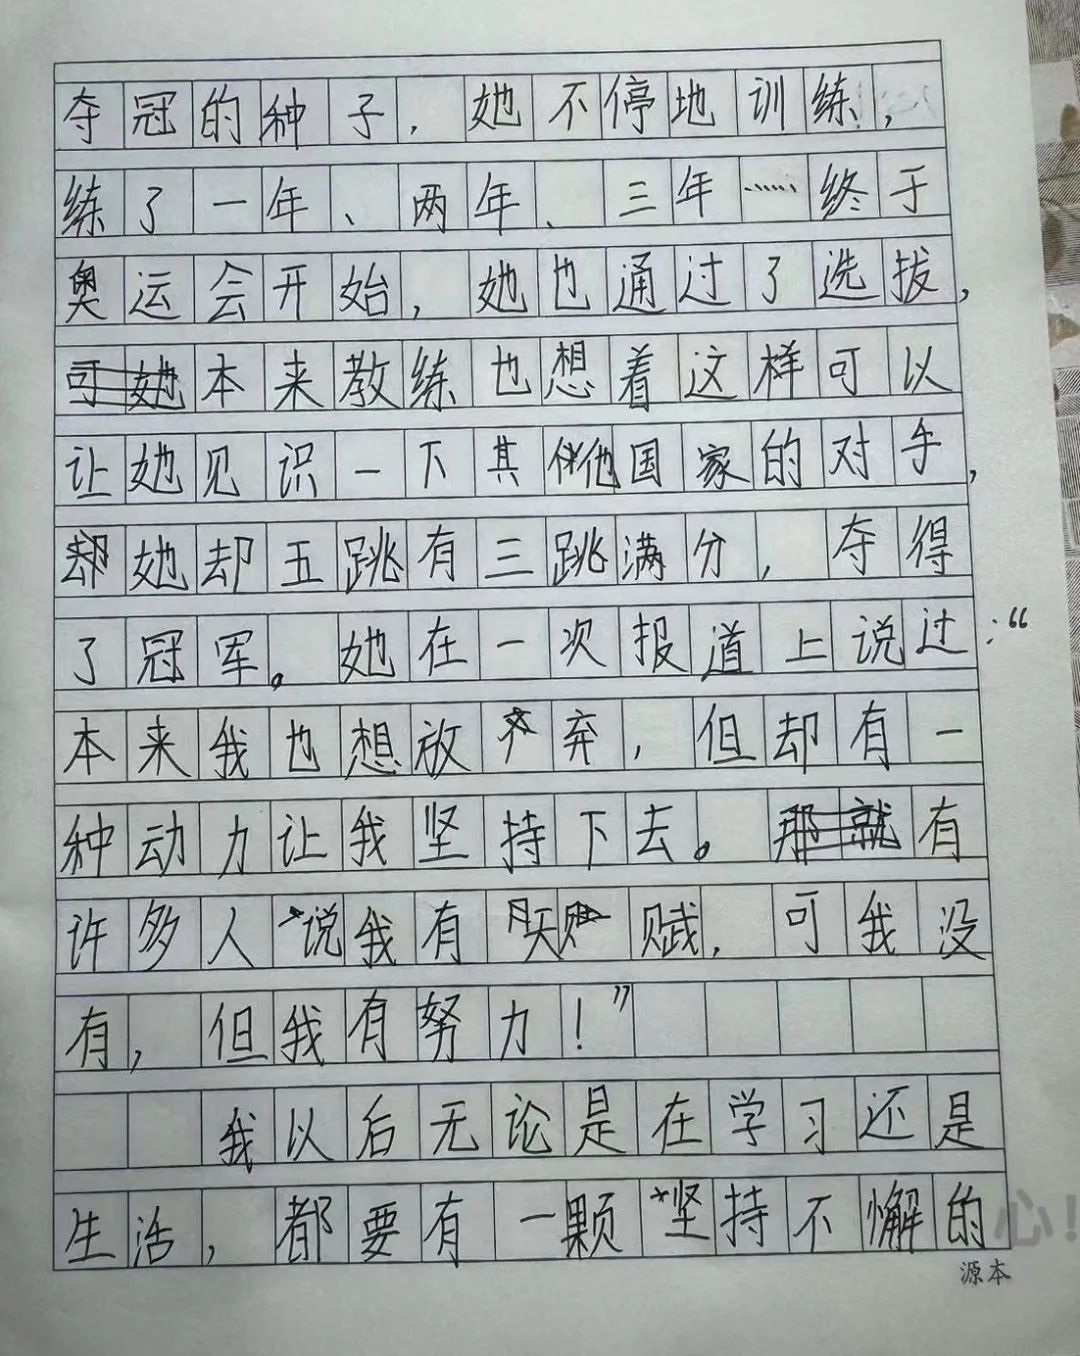 夺冠的种子，她不停地训练，
练了一年、两年、三年……终于
奥运会开始，她也通过了选拔，
可她本来教练也想着这样可以
让她见识一下其他国家的对手，
却她却五跳有三跳满分，夺得
了冠军。她在一次报道上说过：“
本来我也想放弃，但却有一
种动力让我坚持下去。那就有
许多人说我有天赋，可我没
有，但我有努力！”
我以后无论是在学习还是
生活，都要有一颗坚持不懈的心！
源本